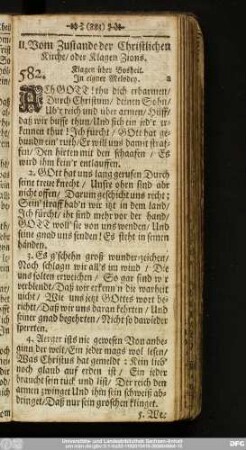 (881)
II. Vom Zustande der Christlichen
Kirche/ oder Klagen Zions.
Klagen über Bosheit.
582. In eigner Melodey.
ACh GOTT! thu dich erbarmen/
Durch Christum/ deinen Sohn/
Üb'r reich und über armen/ Hilff/
daß wir busse thun/ Und sich ein jed'r er-
kennen thut! Ich fürcht/ GOtt hat ge-
bunden ein' ruth/ Er will uns damit straf-
fen/ Den hirten mit den schaafen/ Es
wird ihm kein'r entlauffen.
2. GOtt hat uns lang geruffen Durch
seine treue knecht/ Unsre ohren sind abr
nicht offen/ Darum geschicht uns recht;
Sein' straff hab'n wir itzt in dem land/
Ich fürcht/ ihr sind mehr vor der hand/
GOTT woll' sie von uns wenden/ Und
seine gnad uns senden! Es steht in seinen
händen.
3. Es g'schehn groß wunder-zeichen/
Noch schlagn wir all's in wind/ Die
und falten erweichen/ So gar sind w'r
verblendt/ Daß wir erkenn'n die warheit
nicht/ Wie uns jetzt GOttes wort be-
richt/ Daß wir uns daran kehrten/ Und
seiner gnad begehrten/ Nicht so darwieder
sperrten.
4. Aerger ists nie gewesen Von anbe-
ginn der welt/ Ein jeder mags wol lesen/
Was Christus hat gemeldt: Kein lieb'
noch glaub auf erden ist/ Ein jeder
braucht sein tück und list/ Der reich den
armen zwinget Und ihm sein schweiß ab-
dringet/ Daß nur sein groschen klinget.
5. We: